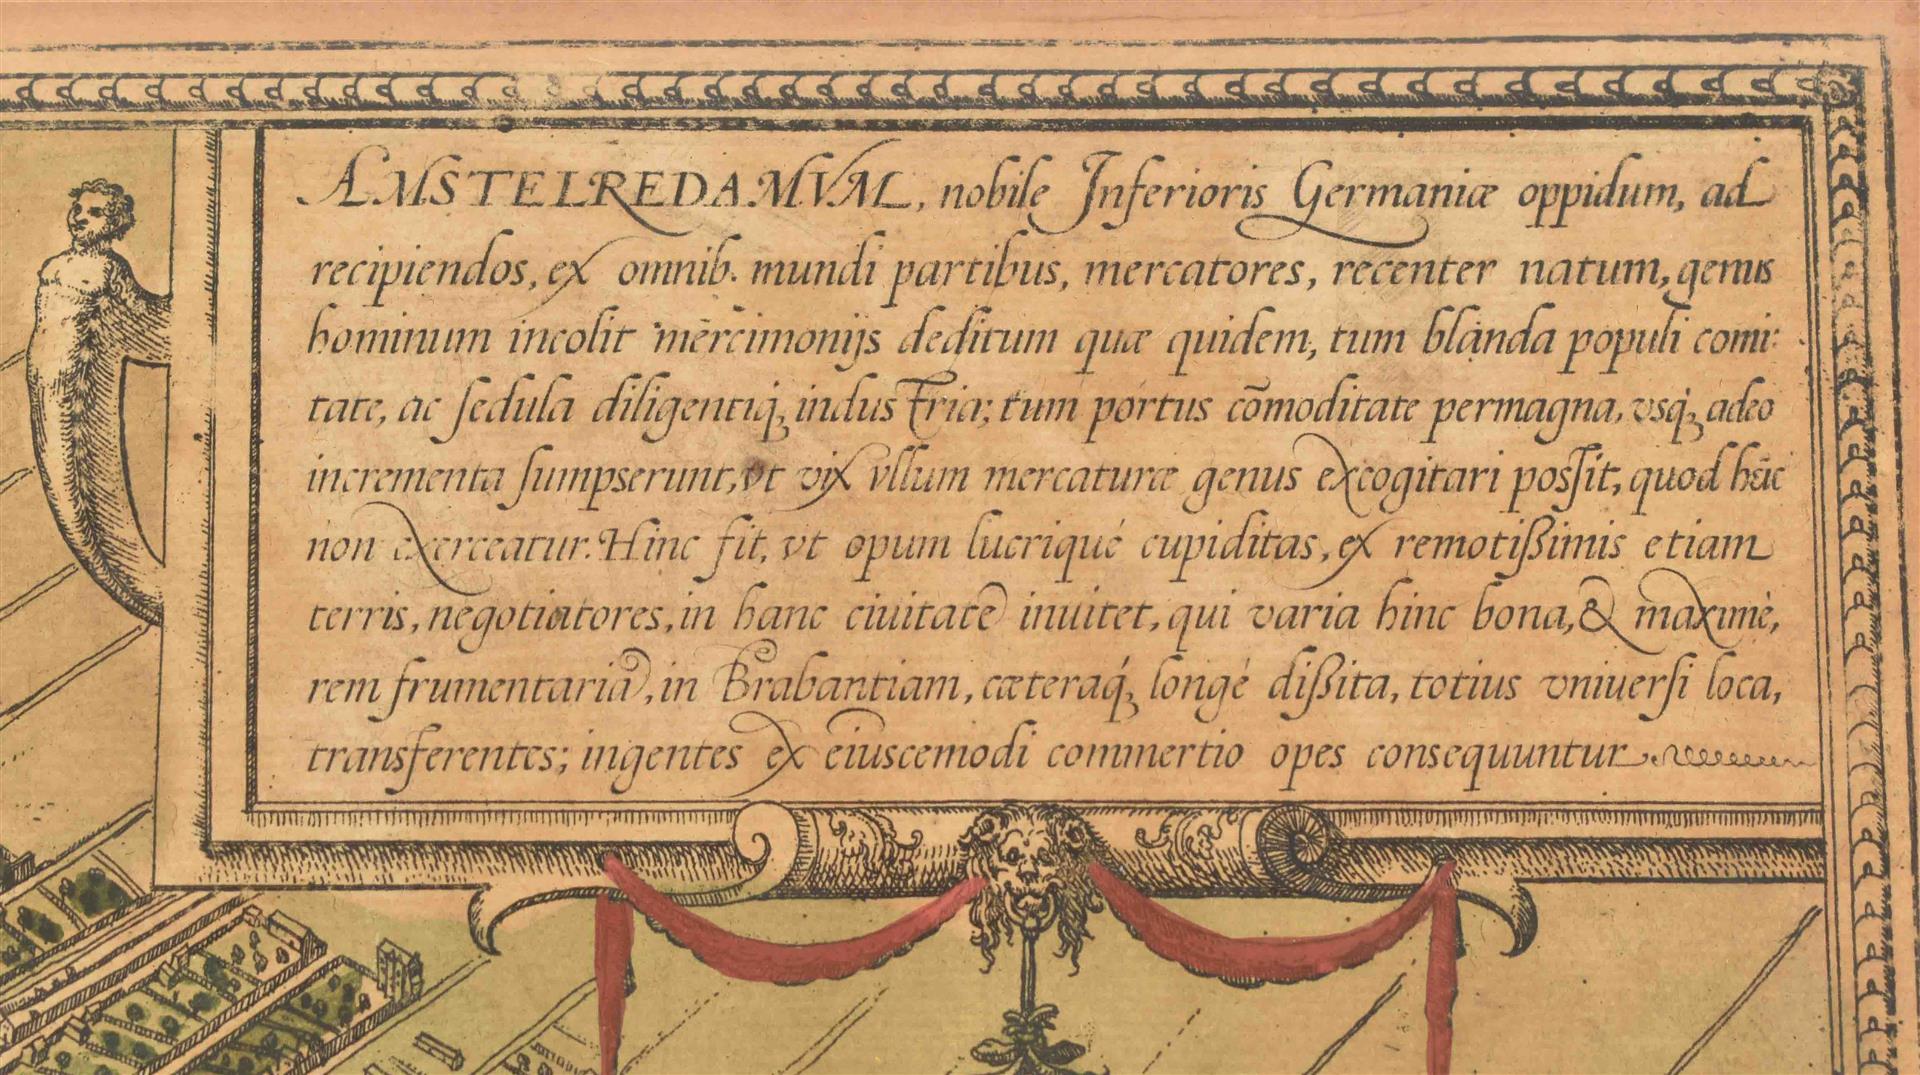 AMSTELREDAMVM, nobile Inferioris Germaniæ oppidum, ad
recipiendos, ex omnib. mundi partibus, mercatores, recenter natum, genus
hominum incolit mercimonijs deditum quæ quidem, tum blanda populi comi:
tate, ac ſedula diligentiq́ꝫ induſtria; tum portus cōmoditate permagna, vsq́ꝫ adeo
incrementa ſumpserunt, vt vix vllum mercaturæ genus excogitari poſſit, quod hāc
non exerceatur. Hinc fit, vt opum lucriqué cupiditas, ex remotißimis etiam
terris, negotiatores, in hanc ciuitatē inuitet, qui varia hinc bona, & maximè,
rem frumentariā, in Brabantiam, cæteraq́ꝫ longé dißita, totius vniuerſi loca,
transferentes; ingentes ex eiuscemodi commertio opes consequuntur.